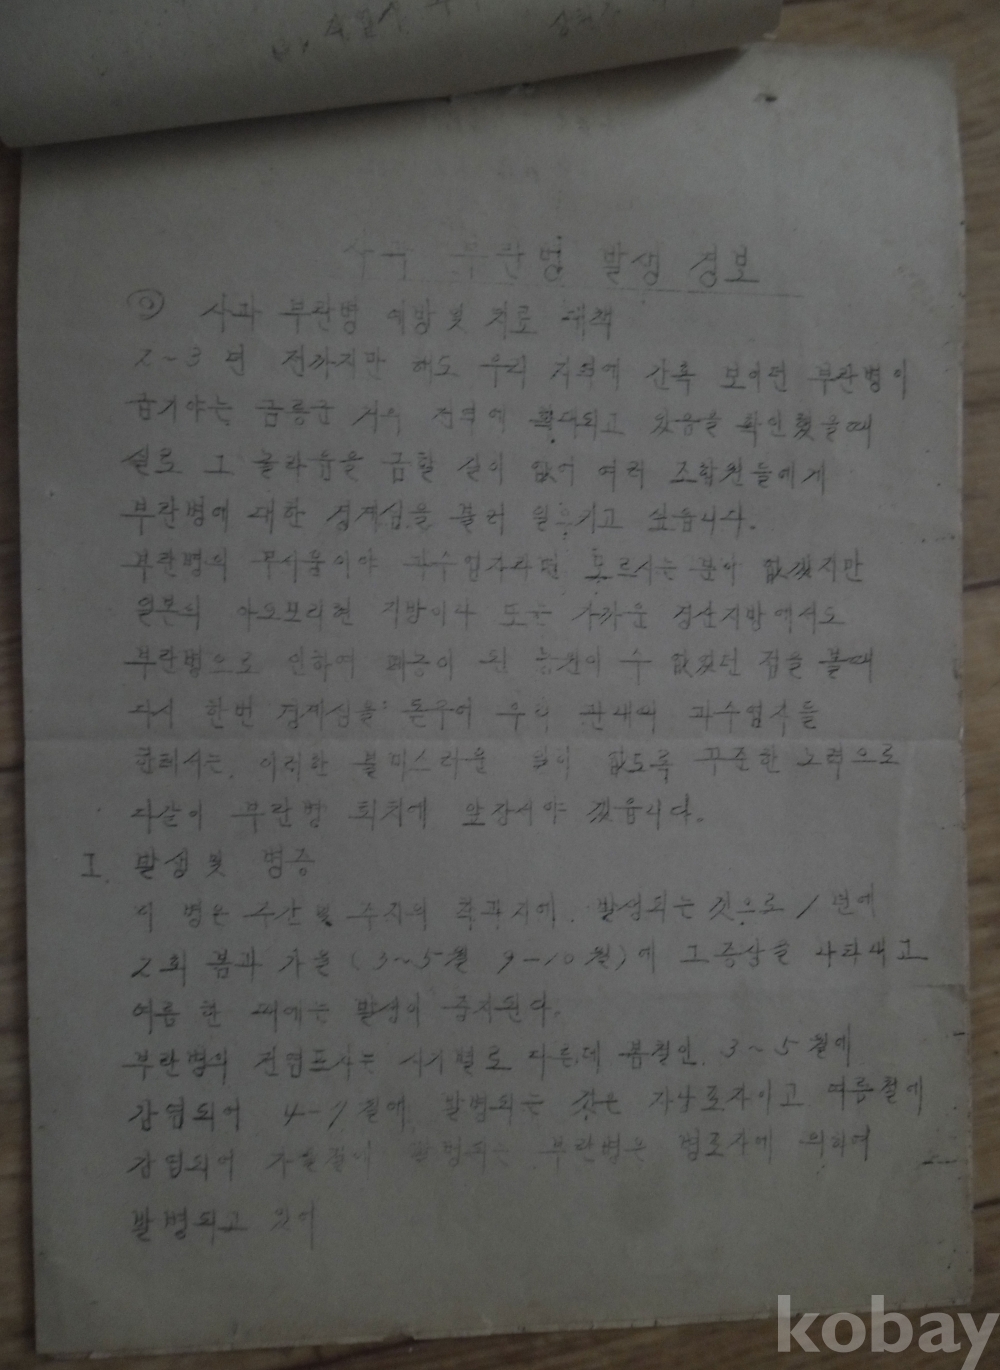 사과 부란병 발생 경보
◎ 사과 부란병 예방 및 치료 대책
2~3년 전까지만 해도 우리 지역에 간혹 보이던 부란병이
급기야는 금릉군 거의 전역에 확대되고 있음을 확인했을때
실로 그 놀라움을 금할 길이 없어 여러 조합원들에게
부란병에 대한 경계심을 불러 일으키고 싶읍니다.
부란병의 무서움이야 과수업자라면 모르시는 분이 없겠지만
일본의 아오모리현 지방이나 또는 가까운 경산지방에서도
부란병으로 인하여 폐농이 된 농원이 수 없었던 점을 볼때
다시 한번 경계심을 돋구어 우리 관내의 과수업자들
한테서는 이러한 불미스러운 일이 없도록 꾸준한 노력으로
다같이 부란병 퇴치에 앞장서야 겠읍니다.
I. 발생 및 병증
이 병은 주간 및 주지의 에 발생되는 것으로 1년에
2회 봄과 가을 (3~5월 9-10월)에 그 증상을 나타내고
여름 한 때에는 발생이 중지된다.
부란병의 전염포자는 시기별로 다른데 봄철인 3~5월에
감염되어 4-7월에 발병되는 것은 자낭포자이고 여름철에
감염되어 가을철에 발병되는 부란병은 병포자에 의하여
발병되고 있어
kobay